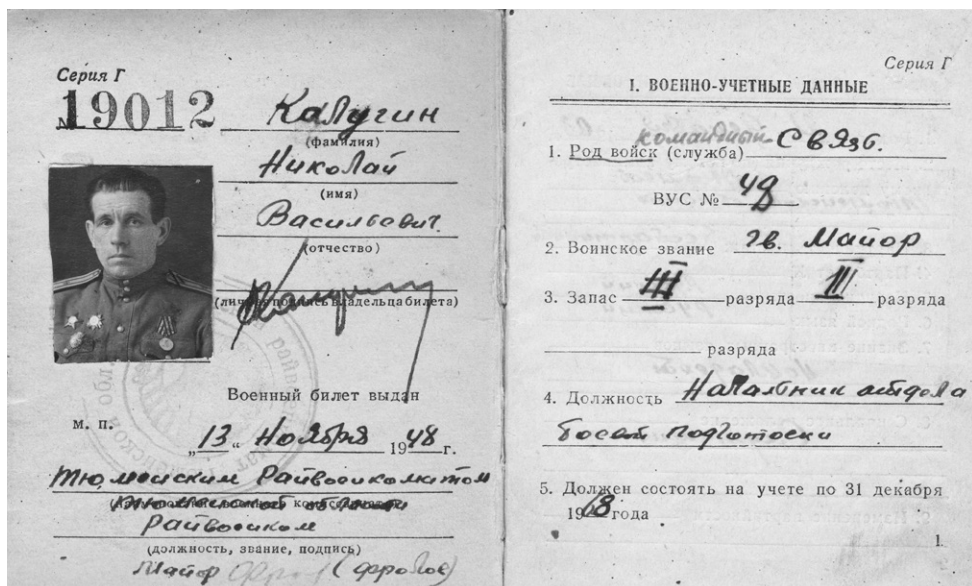 Серия Г
№ 19012
Калугин
(фамилия)
Николай
(имя)
Васильевич
(отчество)
(личная подпись владельца билета)
Военный билет выдан
м. п.
„13" Ноября 1948 г.
Тюменским Райвоенкоматом
Райвоенком
(должность, звание, подпись)
Майор (Фролов)
Серия Г
I. ВОЕННО-УЧЕТНЫЕ ДАННЫЕ
командный
1. Род войск (служба) Связь.
ВУС №
2. Воинское звание гв. Майор
3. Запас III разряда II разряда
разряда
4. Должность Начальник отдела
боевой подготовки
5. Должен состоять на учете по 31 декабря
19 года
1